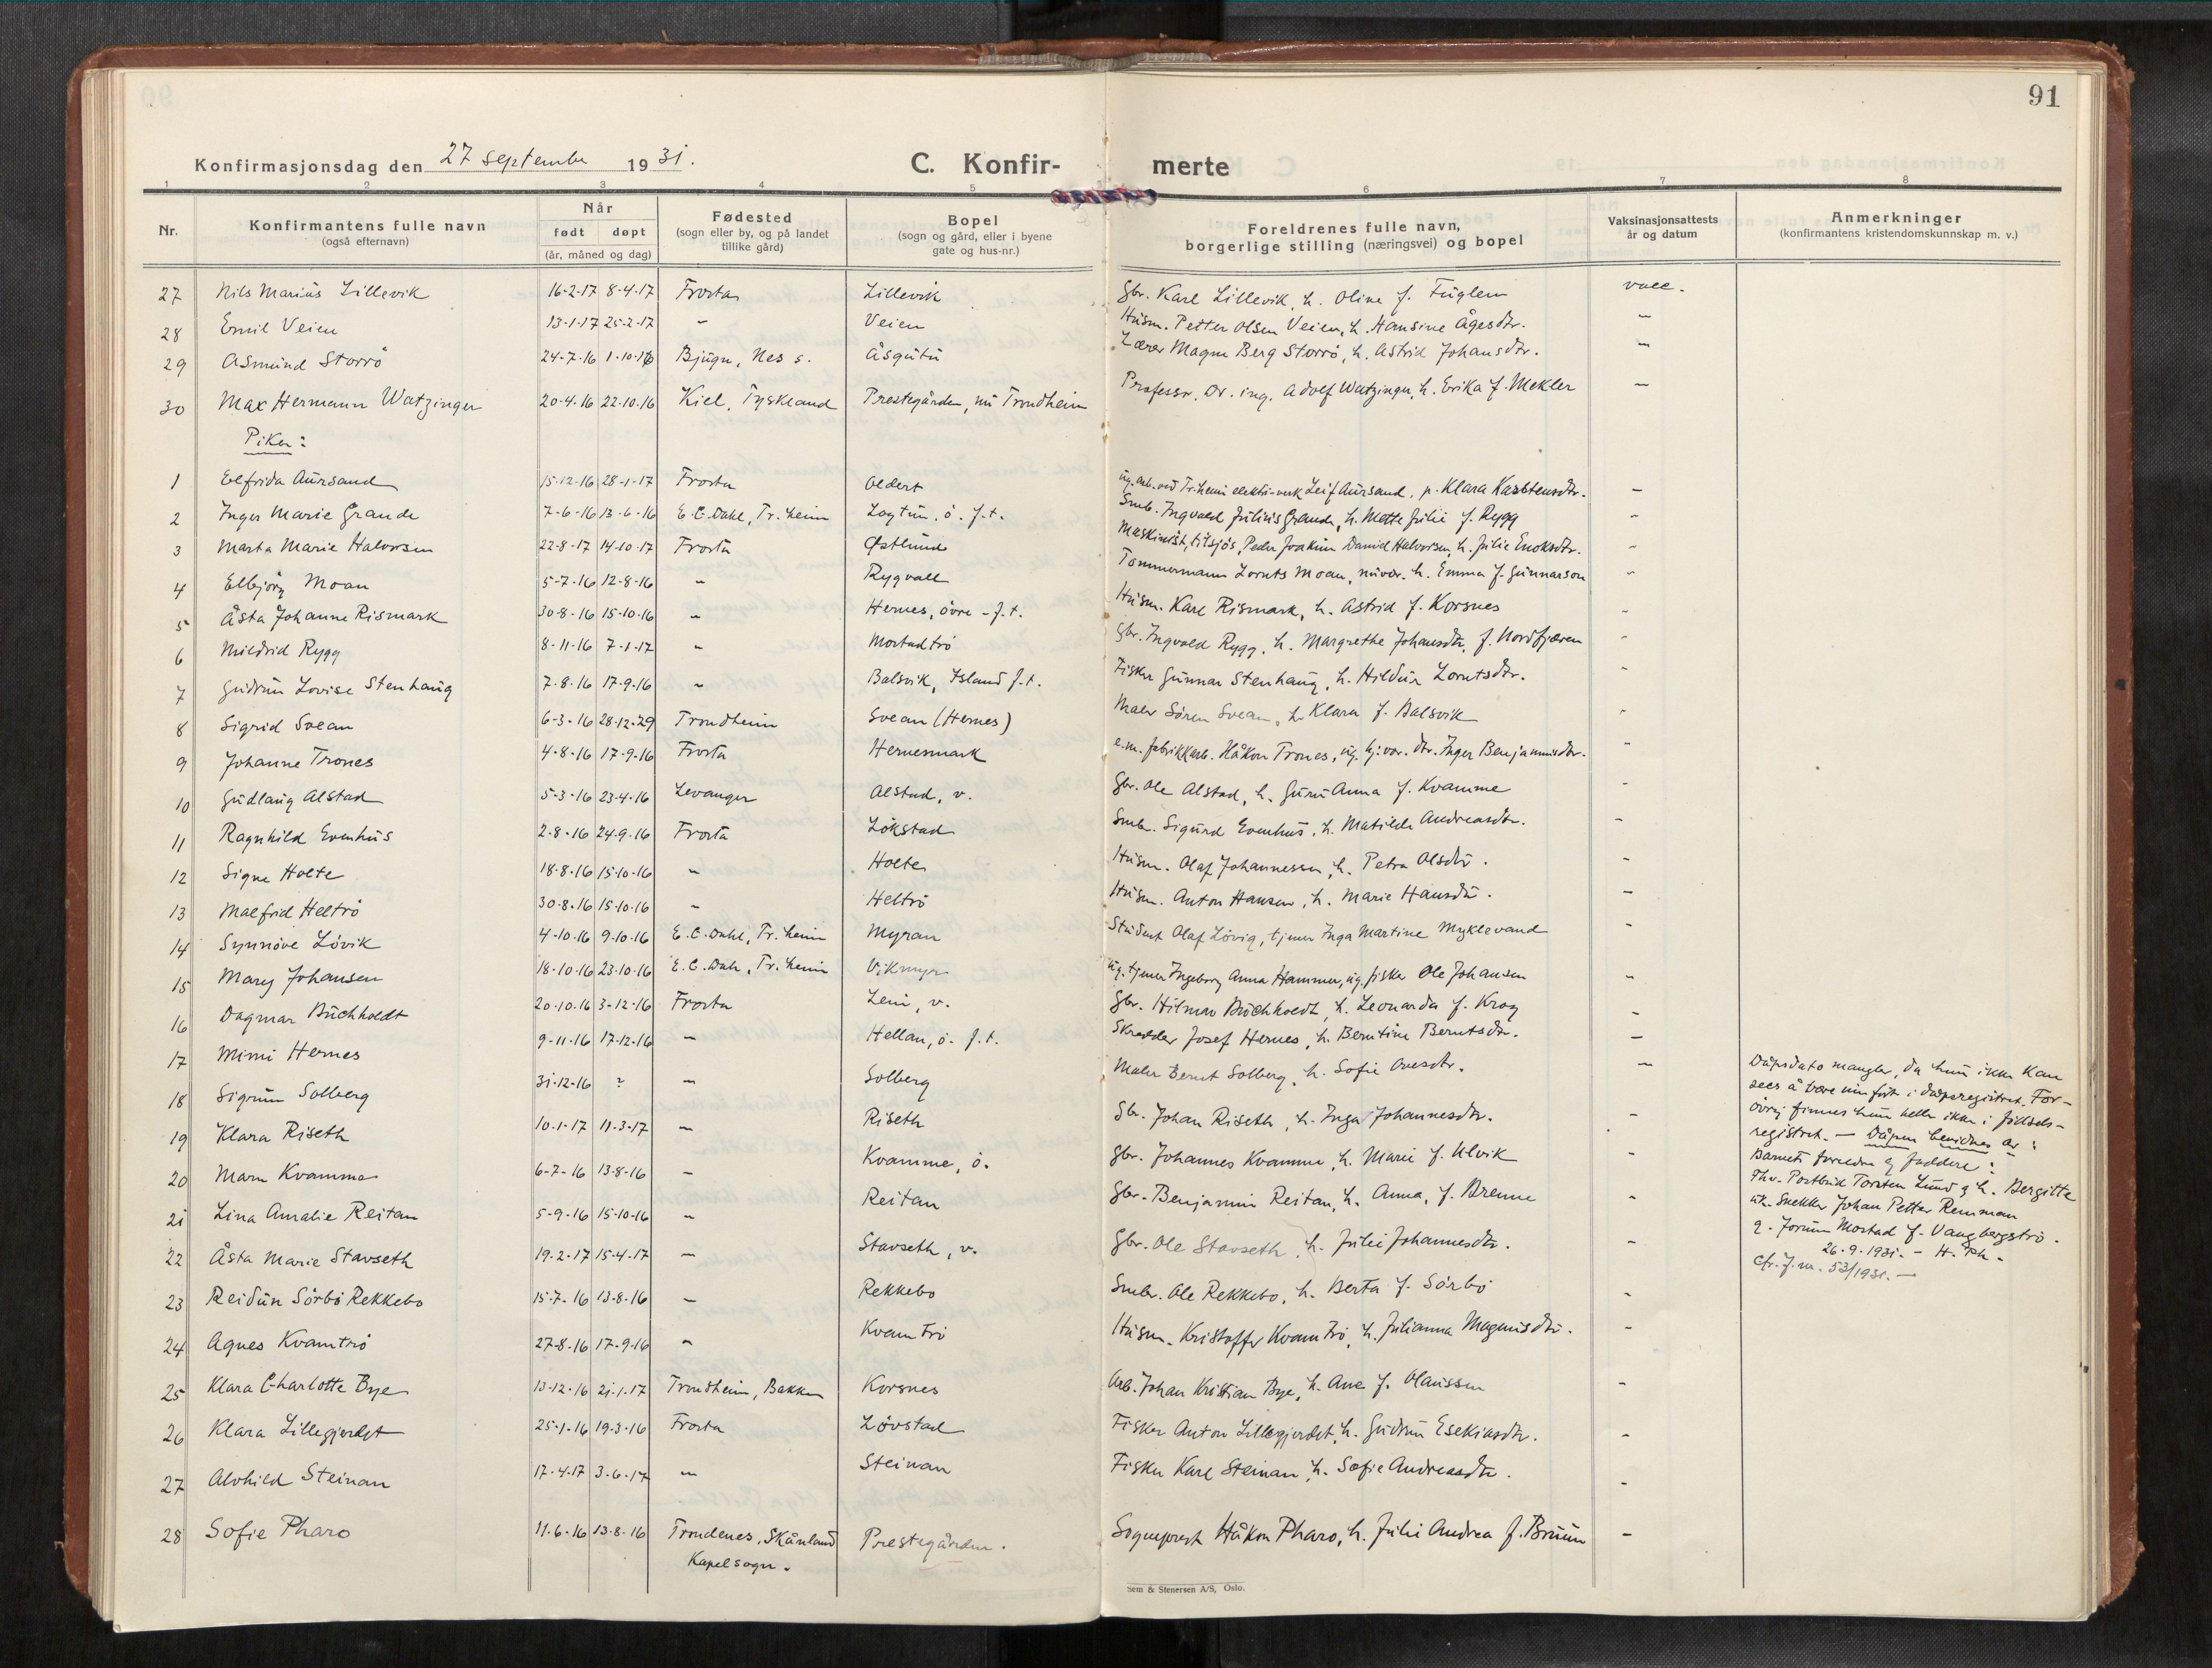 91
Konfirmasjonsdag den 27 september 1931.
C. Konfir- merte
1 2 3 4 5 6 7 8
Nr.
Konfirmantens fulle navn
(også efternavn)
Når
født døpt
(år, måned og dag)
Fødested
(sogn eller by, og på landet
tillike gård)
Bopel
(sogn og gård, eller i byene
gate og hus-nr.)
Foreldrenes fulle navn,
borgerlige stilling (næringsvei) og bopel
Vaksinasjonsattests
år og datum
Anmerkninger
(konfirmantens kristendomskunnskap m. v.)
27 Nils Marius Lillevik 16-2-17 8-4-17 Frosta Lillevik Gbr. Karl Lillevik, h. Oline f. Fuglem vacc.
28 Emil Veien 13-1-17 25-2-17 — Veien Husm. Petter Olsen Veien, h. Hansine Ågesdtr. —
29 Asmund Storrø 24-7-16 1-10-16 Bjugn, Nes s. Åsgutu Lærer Magne Berg Storrø, h. Astrid Johansdtr. —
30 Max Hermann Watzinger 20-4-16 22-10-16 Kiel, Tyskland Prestegården, nu Trondheim Professor, Dr. ing. Adolf Watzinger, h. Erika f. Mekler —
Piker:
1 Elfrida Aursand 15-12-16 28-1-17 Frosta Aldert ug. arb. ved Tr.heim elektr.-verk Leif Aursand, p. Klara Karstensdtr. —
2 Inger Marie Grande 7-6-16 13-6-16 E. C. Dahl, Tr. heim Logtun, ö. f.t. Smb. Ingvald Julius Grande, h. Mette Julie f. Rygg —
3 Marta Marie Halvorsen 22-8-17 14-10-17 Frosta Østlund Maskinist, tilsjøs, Peder Joakim Daniel Halvorsen, h. Julie Enoksdtr. —
4 Elbjörg Moan 5-7-16 12-8-16 — Rygvoll Tömmermann Lornts Moan, nuvær. h. Emma f. Gunnarson —
5 Åsta Johanne Rismark 30-8-16 15-10-16 — Hernes, övre - f.t. Husm. Karl Rismark, h. Astrid f. Korsnes —
6 Mildrid Rygg 8-11-16 7-1-17 — Mostadtrö Gbr. Ingvald Rygg, h. Margrethe Johansdtr. f. Nordfjæren —
7 Gudrun Lovise Stenhaug 7-8-16 17-9-16 — Balsvik, Island f.t. Fisker Gunnar Stenhaug, h. Hildur Lorntsdtr. —
8 Sigrid Svean 6-3-16 28-12-29 Trondheim Svean (Hernes) Maler Sören Svean, h. Klara f. Balsvik —
9 Johanne Trones 4-8-16 17-9-16 Frosta Hernesmark e.m. fabrikkarb. Håkon Trones, ug. hj.vær. dtr. Inger Benjaminsdtr. —
10 Gudlaug Alstad 5-3-16 23-4-16 Levanger Alstad, v. Gbr. Ole Alstad, h. Guru Anna f. Kvamme —
11 Ragnhild Evenhus 2-8-16 24-9-16 Frosta Lökstad Smbr. Sigurd Evenhus, h. Matilde Andreasdtr. —
12 Signe Holte 18-8-16 15-10-16 — Holte Husm. Olaf Johannessen, h. Petra Olsdtr. —
13 Malfrid Heltrö 30-8-16 15-10-16 — Heltrö Husm. Anton Hansen, h. Marie Hansdtr. —
14 Synnöve Lövik 4-10-16 9-10-16 E. C. Dahl, Tr. heim Myran Student Olaf Lövig, tjener Inga Martine Myklevand —
15 Mary Johansen 18-10-16 23-10-16 E. C. Dahl, Tr. heim Vikmyr ug. tjener Ingeborg Anna Hammer, ug. fisker Ole Johansen —
16 Dagmar Buchholdt 20-10-16 3-12-16 Frosta Lein, v. Gbr. Hilmar Buchholdt, h. Leonarda f. Krog —
17 Mimi Hernes 9-11-16 17-12-16 — Hellan, ö. f.t. Skredder Josef Hernes, h. Berntine Berntsdtr. —
18 Sigrun Solberg 31-12-16 ? — Solberg Maler Bernt Solberg, h. Sofie Ovesdtr. —
19 Klara Riseth 10-1-17 11-3-17 — Riseth Gbr. Johan Riseth, h. Inga Johannesdtr. —
20 Marn Kvamme 6-7-16 13-8-16 — Kvamme, ö. Gbr. Johannes Kvamme, h. Marie f. Ulvik —
21 Lina Amalie Reitan 5-9-16 15-10-16 — Reitan Gbr. Benjamin Reitan, h. Anna, f. Brenne —
22 Åsta Marie Stavseth 19-2-17 15-4-17 — Stavseth, v. Gbr. Ole Stavseth, h. Julie Johannesdtr. —
23 Reidun Sörbö Rekkebo 15-7-16 13-8-16 — Rekkebo Smbr. Ole Rekkebo, h. Berta f. Sörbö —
24 Agnes Kvamtrö 27-8-16 17-9-16 — Kvamtrö Husm. Kristoffer Kvamtrö, h. Julianna Magnusdtr. —
25 Klara Charlotte Bye 13-12-16 21-1-17 Trondheim, Bakke Korsnes Arb. Johan Kristian Bye, h. Ane f. Olaussen —
26 Klara Lillegjerdet 25-1-16 19-3-16 Frosta Lövstad Fisker Anton Lillegjerdet, h. Gudrun Esekiasdtr. —
27 Alvhild Steinan 17-4-17 3-6-17 — Steinan Fisker Karl Steinan, h. Sofie Andreasdtr. —
28 Sofie Pharo 11-6-16 13-8-16 Trondenes, Skånland Prestegården. Sogneprest Håkon Pharo, h. Julie Andrea f. Bruun —
Kapelsogn.
Dåpsdato mangler, da hun ikke kan
sees å være innført i dåpsregistret. For-
övrig finnes hun heller ikke i födsels-
registret. — Dåpen bevidnes av:
Barnets foreldre og faddere:
Thv. Postbud Torsten Lund og h. Bergitte
uk. Snekker Johan Petter Renman
g. Jorunn Mostad f. Vangbergströ.
26-9-1931. - H. Ph.
Cfr. J.nr. 53/1931. —
Sem & Stenersen A/S, Oslo.